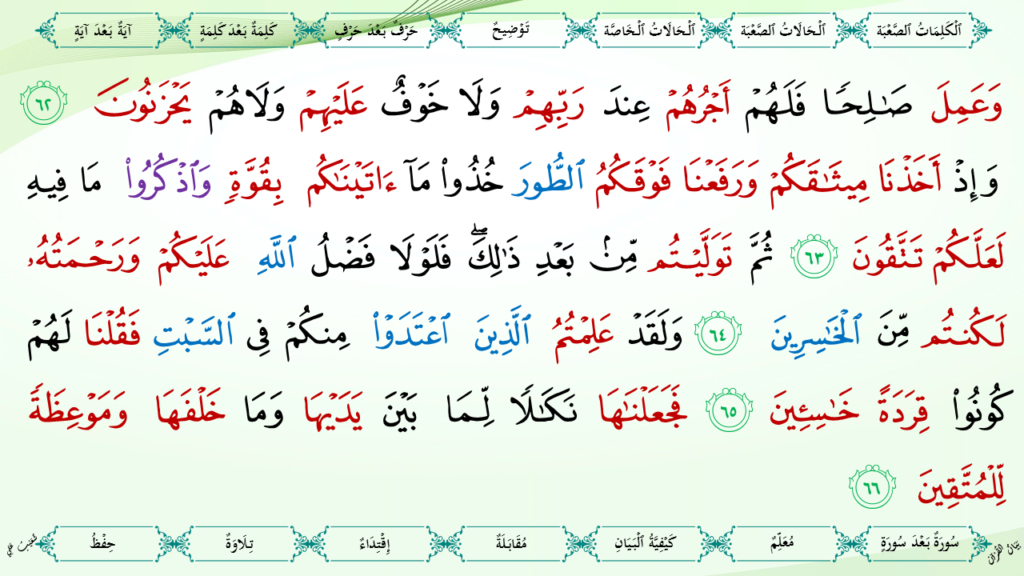 ٱلْكَلِمَاتُ ٱلصَّعْبَة ٱلْحَالَاتُ ٱلصَّعْبَة ٱلْحَالَاتُ ٱلْخَاصَّة تَوْضِيحٌ حَرْفٌ بَعْدَ حَرْفٍ كَلِمَةٌ بَعْدَ كَلِمَةٍ آيَةٌ بَعْدَ آيَةٍ
وَعَمِلَ صَـٰلِحًا فَلَهُمْ أَجْرُهُمْ عِندَ رَبِّهِمْ وَلَا خَوْفٌ عَلَيْهِمْ وَلَاهُمْ يَحْزَنُونَ ٦٢
وَإِذْ أَخَذْنَا مِيثَـٰقَكُمْ وَرَفَعْنَا فَوْقَكُمُ ٱلطُّورَ خُذُوا۟ مَآ ءَاتَيْنَـٰكُم بِقُوَّةٍ وَٱذْكُرُوا۟ مَا فِيهِ
لَعَلَّكُمْ تَتَّقُونَ ٦٣ ثُمَّ تَوَلَّيْتُم مِّنۢ بَعْدِ ذَٰلِكَ ۖ فَلَوْلَا فَضْلُ ٱللَّهِ عَلَيْكُمْ وَرَحْمَتُهُۥ
لَكُنتُم مِّنَ ٱلْخَـٰسِرِينَ ٦٤ وَلَقَدْ عَلِمْتُمُ ٱلَّذِينَ ٱعْتَدَوْا۟ مِنكُمْ فِى ٱلسَّبْتِ فَقُلْنَا لَهُمْ
كُونُوا۟ قِرَدَةً خَـٰسِـِٔينَ ٦٥ فَجَعَلْنَـٰهَا نَكَـٰلًا لِّمَا بَيْنَ يَدَيْهَا وَمَا خَلْفَهَا وَمَوْعِظَةً
لِّلْمُتَّقِينَ ٦٦
سُورَةٌ بَعْدَ سُورَةٍ مُعَلِّمٌ كَيْفِيَّةُ ٱلْبَيَانِ مُقَابَلَةٌ إِقْتِدَاءٌ تِلَاوَةٌ حِفْظٌ